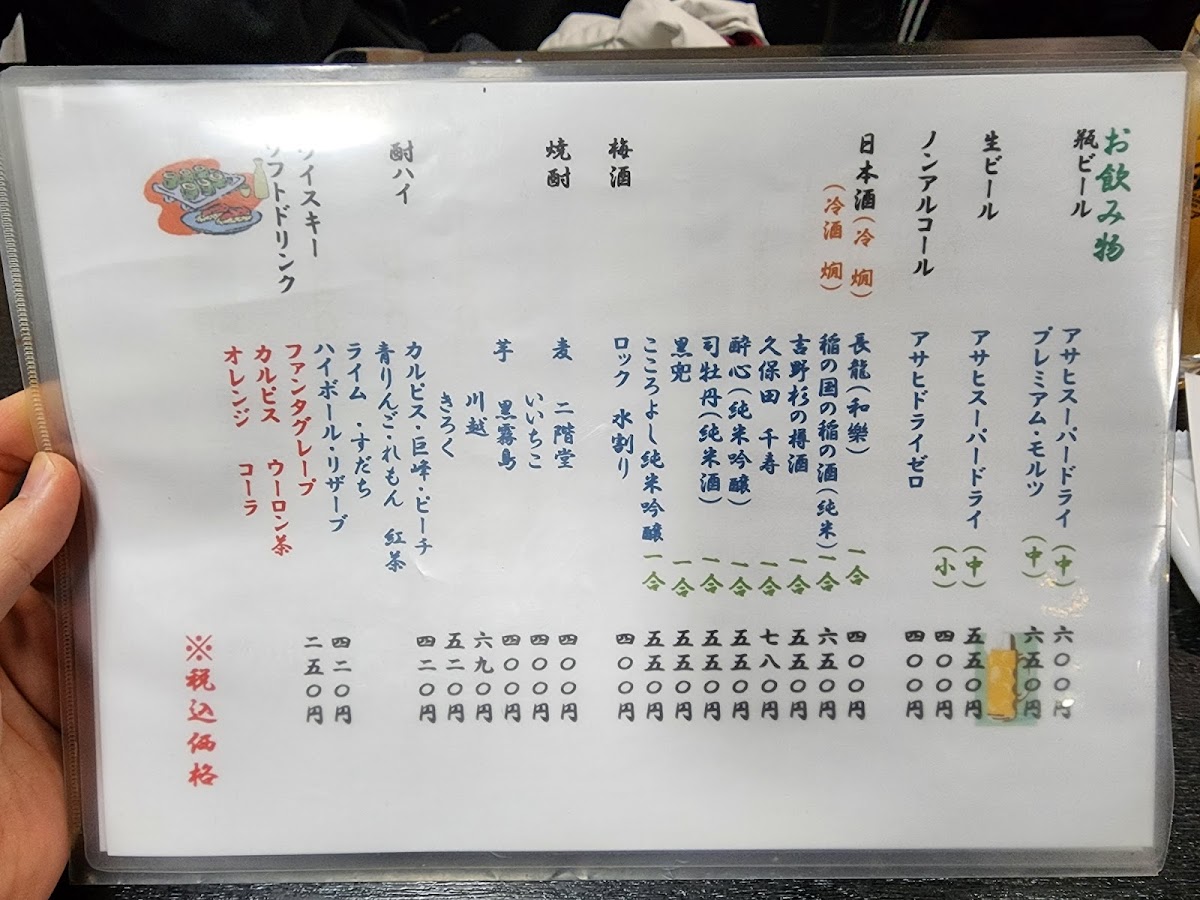 お飲み物
瓶ビール
アサヒスーパードライ (中) 六〇〇円
プレミアム・モルツ (中) 六五〇円
生ビール
アサヒスーパードライ (中) 五五〇円
(小) 四〇〇円
ノンアルコール
アサヒドライゼロ 四〇〇円
日本酒(冷 燗)
(冷酒 燗)
長龍(和樂) 一合 四〇〇円
稲の国の稲の酒(純米) 一合 六五〇円
吉野杉の樽酒 一合 五五〇円
久保田 千寿 一合 七八〇円
酔心(純米吟醸) 一合 五五〇円
司牡丹(純米酒) 一合 五五〇円
黒兜 一合 五五〇円
こころよし純米吟醸 一合 五五〇円
梅酒
ロック 水割り 四〇〇円
焼酎
麦 二階堂 四〇〇円
いいちこ 四〇〇円
芋 黒霧島 四〇〇円
川越 六九〇円
きろく 五二〇円
酎ハイ
カルピス・巨峰・ピーチ 四二〇円
青りんご・れもん 紅茶
ライム ・すだち
ウイスキー
ハイボール・リザーブ 四二〇円
ソフトドリンク
ファンタグレープ 二五〇円
カルピス ウーロン茶
オレンジ コーラ
※税込価格